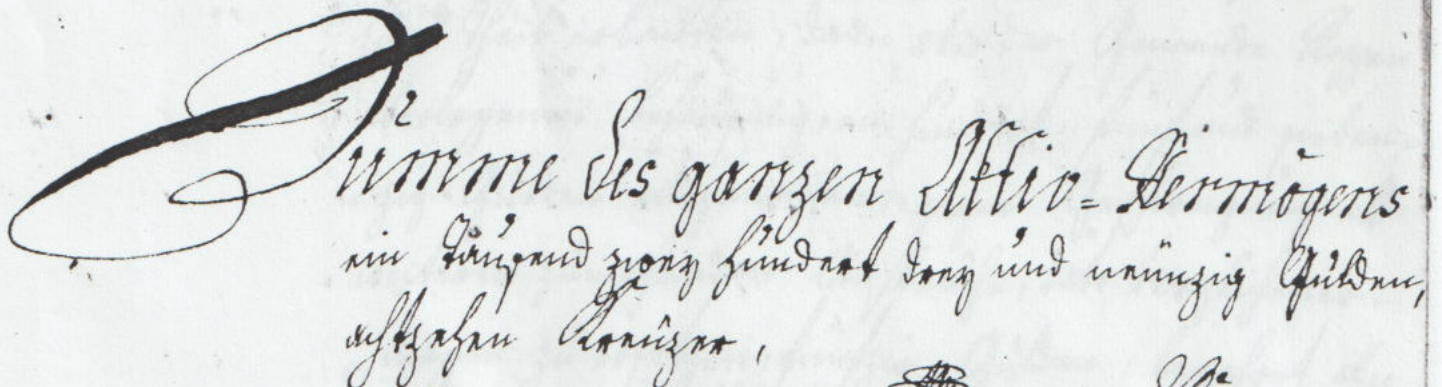 Summe des ganzen Aktiv=Vermögens
ein Tausend zwey Hundert drey und neunzig Gulden,
achtzehen Kreuzer,